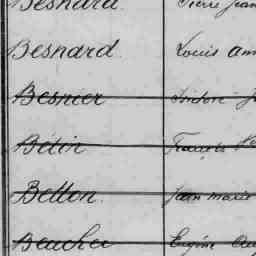 Besnard Pierre Jean
Besnard Louis
Besnier
Bétin François
Betton Jean marie
Beucher Eugène